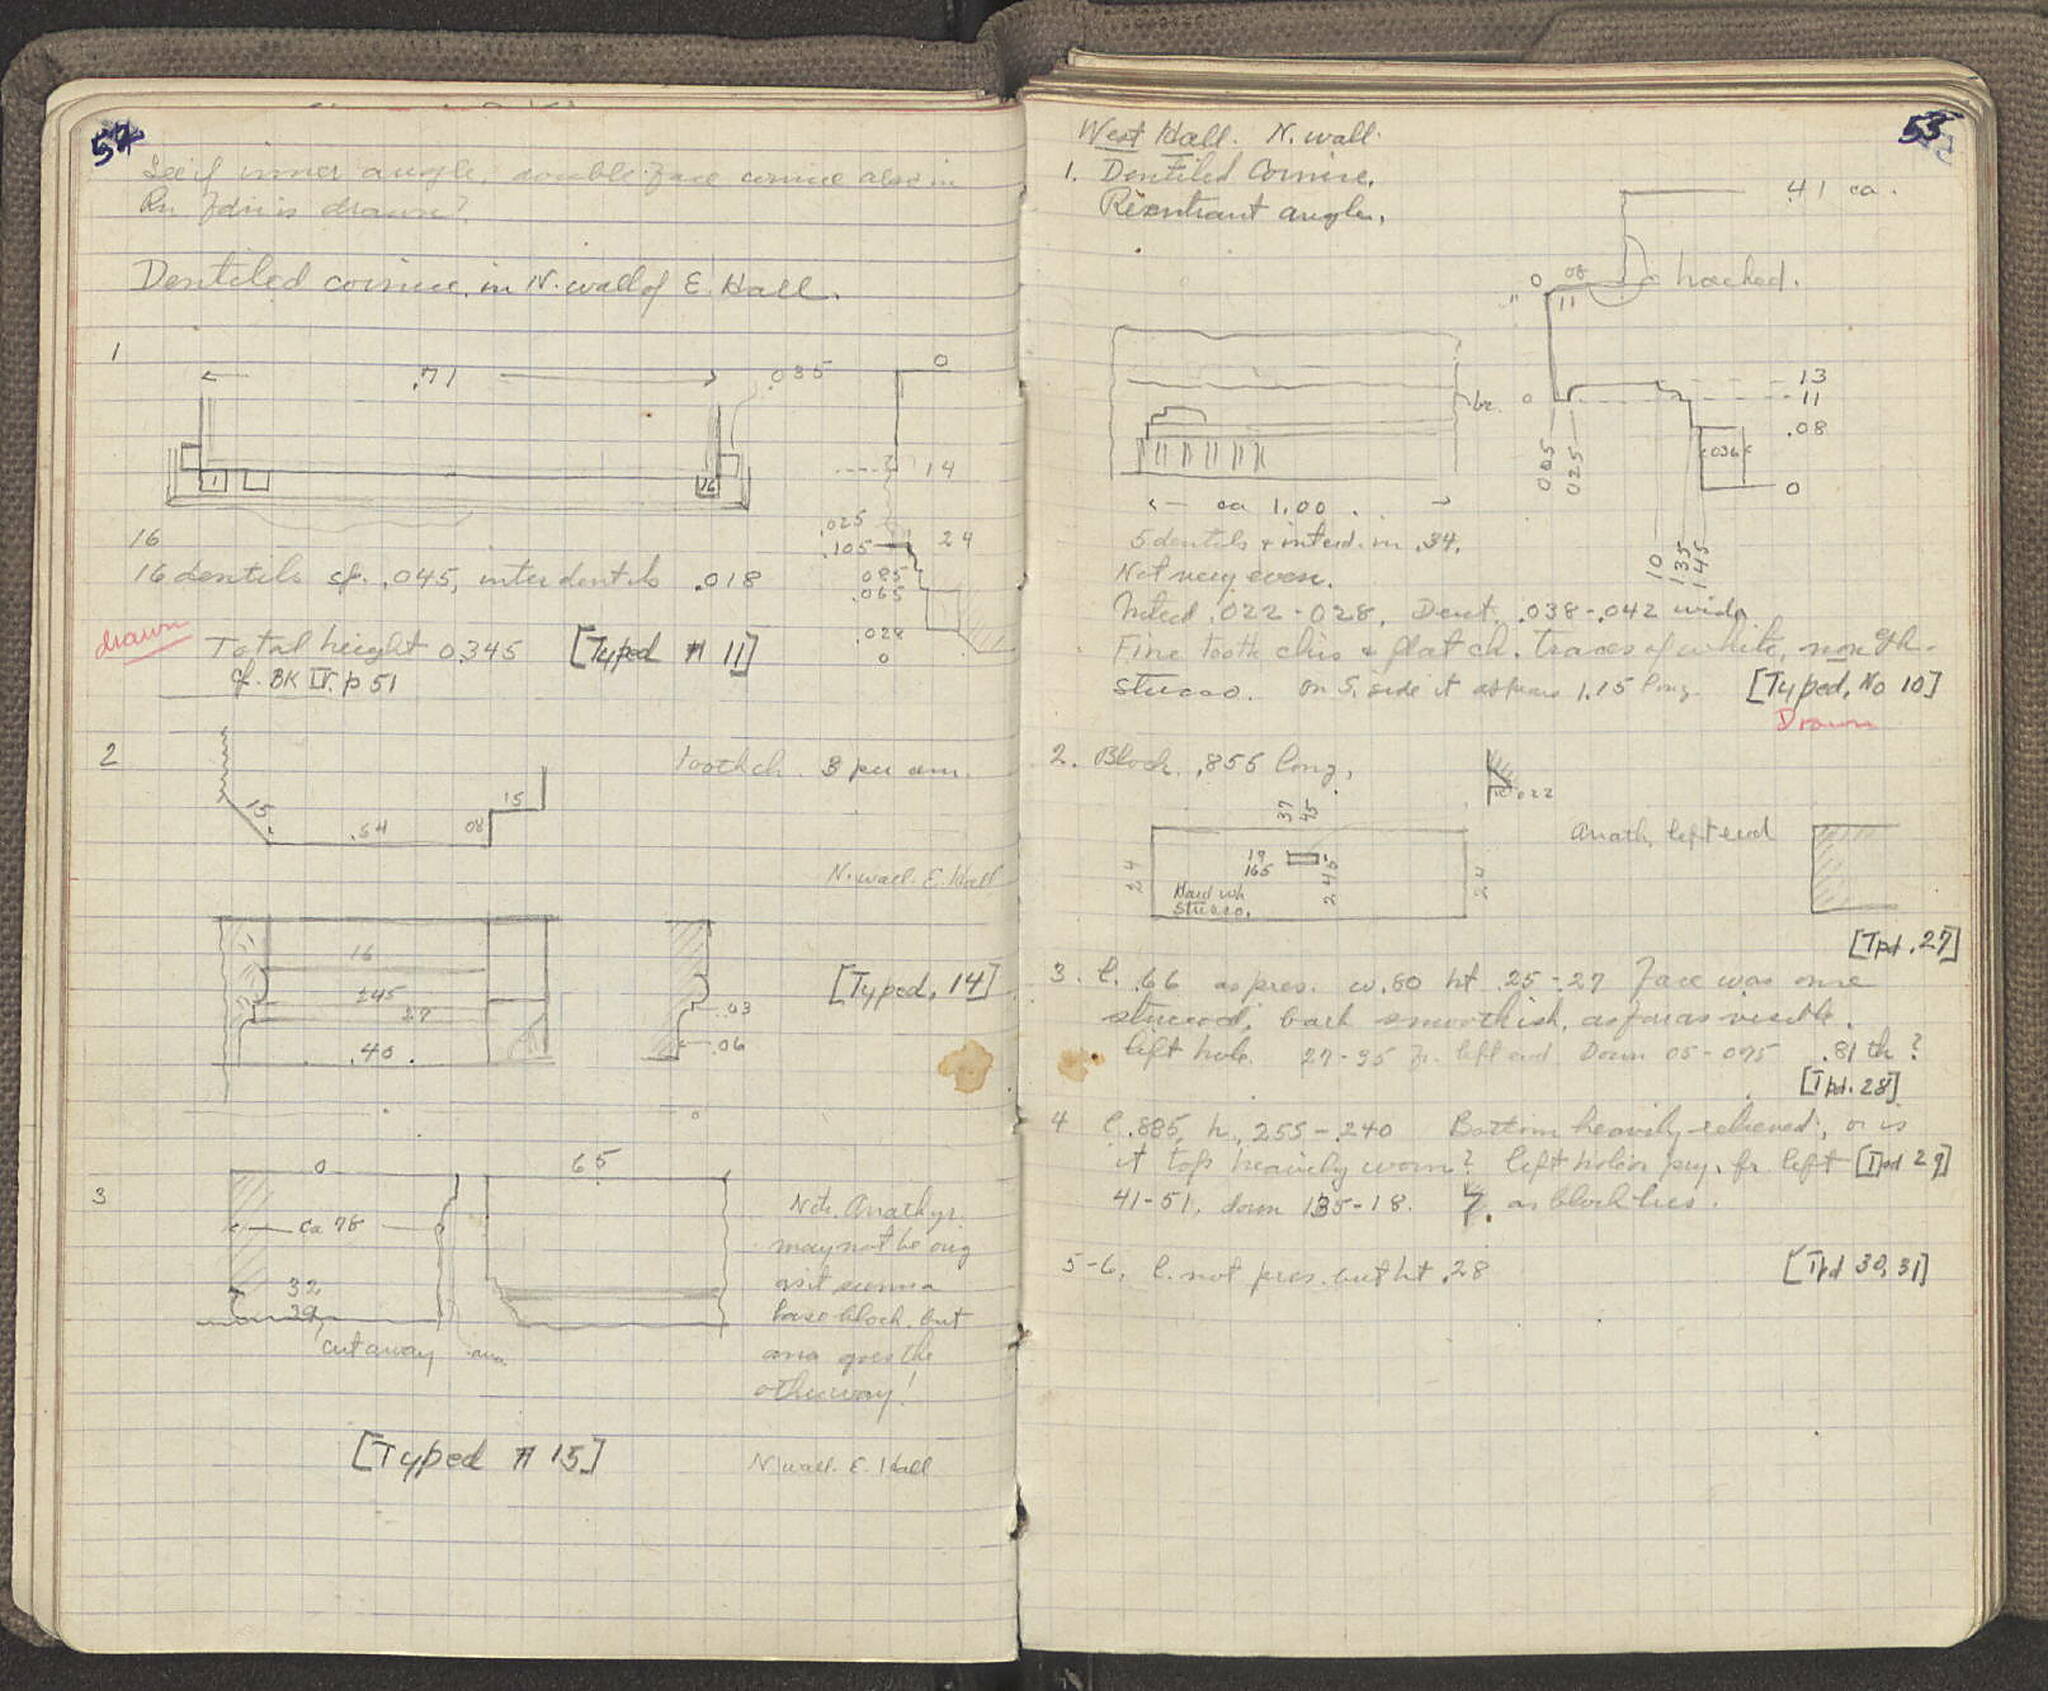 54
See if inner angle, double face cornice also in
drawn?
Dentiled cornice in N. wall of E. Hall.
1
.71
.035
0
14
.025
.105
24
.085
.065
.028
0
1
16
16
16 dentils sp. .045, interdentils .018
drawn
Total height 0.345 [Typed # 11]
cf. BK IV. p 51
2
Toothch. 3 per cm.
15
.54
08
15
N. wall. E. Hall
16
±45
27
.40
.03
.06
[Typed, 14]
3
0
65
ca 78
32
39
cut away
Note. Anathyr.
may not be orig
as it seems a
base block, but
ana goes the
other way!
[Typed # 15]
N wall. E. Hall
53
West Hall. N. wall.
1. Dentiled Cornice.
Rëentrant angle.
.41 ca.
0
08
11
hacked.
br.
0
13
11
.08
.036
0
005
025
10
135
145
ca 1.00
5 dentils & interd. in .34.
Not very even.
Interd .022-028. Dent. .038-.042 wide
Fine tooth chis & flat ch. traces of white, non gh.
stucco. on S. side it appears 1.15 long. [Typed, No 10]
Drawn
2. Block .855 long.
.022
37
45
24
19
165
245
24
Hard wh
stucco.
Anath, left end
[Tpd. 27]
3. l. .66 as pres. w .80 ht .25-.27 Face was once
stuccoed, back smoothish, as far as visible.
left hole. 27-35 fr. left end. Down 05-075 .81 th?
[Tpd. 28]
4 l. .885, h. .255-.240 Bottom heavily relieved, or is
it top heavily worn? left hole is pry. fr. left [Tpd 29]
41-51, down 135-18. as block lies.
5-6, l. not pres. but ht .28 [Tpd 30, 31]